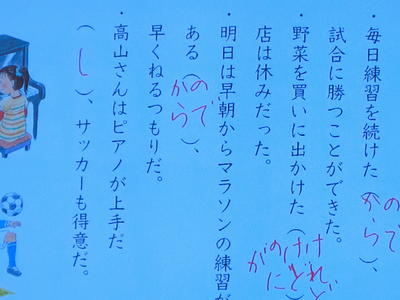 ・毎日練習を続けた(ので から)、
試合に勝つことができた。
・野菜を買いに出かけた(けれど けど のに が)
店は休みだった。
・明日は早朝からマラソンの練習が
ある(ので から)、
早くねるつもりだ。
・高山さんはピアノが上手だ
(し)、サッカーも得意だ。